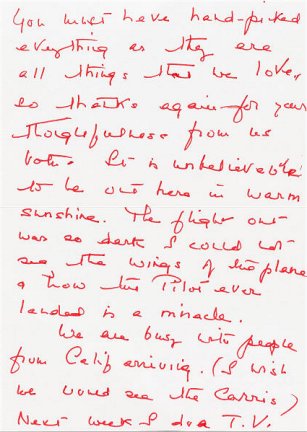 You must have hand-picked
everything as they are
all things that we love,
so thanks again for your
thoughfulness from us
both. It is unbelievable
to be out here in warm
sunshine. The flight out
was so dark I could not
see the wings of the plane
& how the Pilot ever
landed is a miracle.
We are busy with people
from Calif arriving. (I wish
we would see the Carris)
Next week I do a T.V.